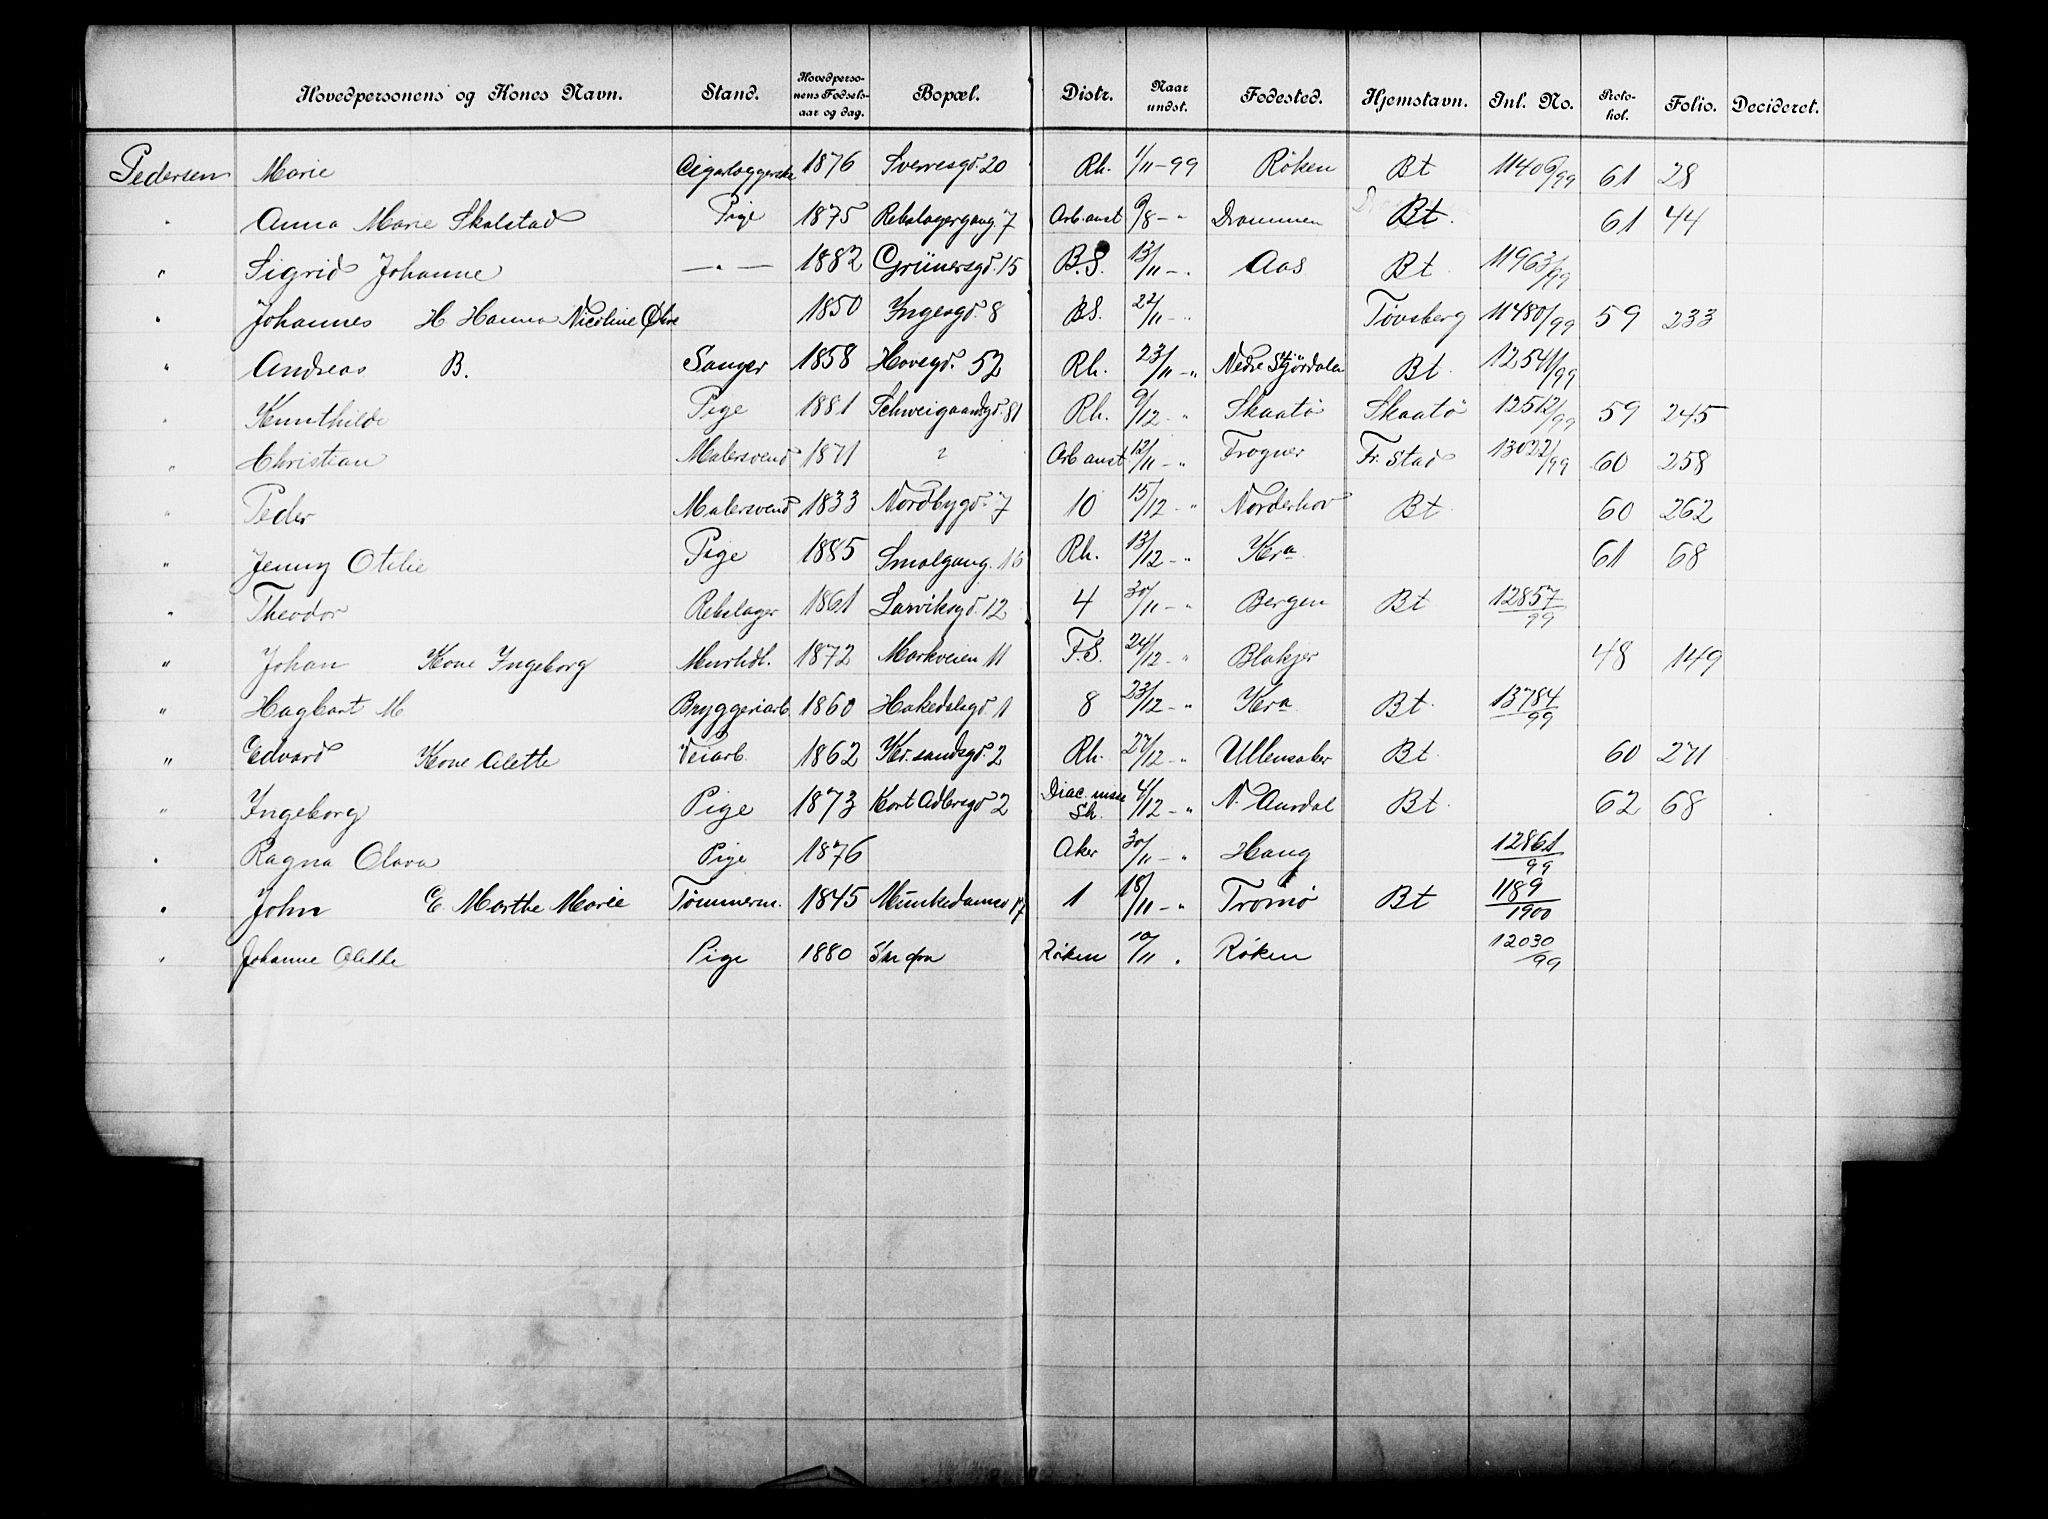 Hovedpersonens og Kones Navn. Stand. Hovedpersonens Fødselsaar og dag. Bopæl. Distr. Naar undst. Fødested. Hjemstavn. Inl. No. Protokol. Folio. Decideret.
Pedersen Marie Cigarlæggerske 1876 Sverresgd. 20 Rh. 1/11-99 Røken Bt 11406/99 61 28
" Anna Marie Skalstad Pige 1875 Rebslagergang. 7 Arb.anst 9/8-" Drammen Bt. 61 44
" Sigrid Johanne —"— 1882 Grünersgd. 15 B.S. 13/11-" Aas Bt 11963/99
" Johannes H Hanna Nicoline 1850 Ingesgd. 8 B.S. 22/11-" Tøvsberg 11480/99 59 233
" Andreas B. Sanger 1858 Hovegd. 52 Rh. 23/11-" Nedre Stjördalen Bt. 12541/99
" Kunthilde Pige 1881 Schweigaardsgd. 81 Rh. 9/12-" Skaatö Skaatö 12512/99 59 245
" Christian Malersvend 1871 ? Arb.anst 12/11-" Frogner Fr.stad 13022/99 60 258
" Peder Malersvend 1833 Nordbygd. 7 10 15/12-" Norderhov Bt 60 262
" Jenny Otilie Pige 1885 Smalgang. 16 Rh. 13/12-" Kra 61 68
" Theodor Rebslager 1861 Larviksgd. 12 4 30/11-" Bergen Bt 12857/99
" Johan Kone Ingeborg Murhdl. 1872 Markveien 11 F.S. 24/12-" Blakjer 48 149
" Hagbart M Bryggeriarb. 1860 Hakedalsgd. 1 8 23/12-" Kra Bt. 13784/99
" Edvard Kone Alette Veiarb. 1862 Kr.sandsgd. 2 Rh. 27/12-" Ullensaker Bt. 60 271
" Ingeborg Pige 1873 Kort Adlersgd 2 Diac. Sh. 4/12-" N. Aurdal Bt 62 68
" Ragna Olava Pige 1876 Aker 30/11-" Haug 12861/99
" John E. Marthe Marie Tømmerm. 1845 Munkedamsv 17 1 18/11-" Tromø Bt 1189/1900
" Johanne Alette Pige 1880 Røken 10/11 " Røken 12030/99